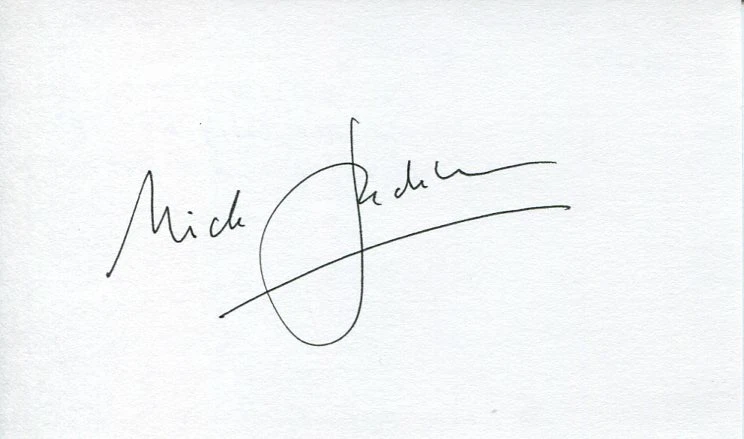 Mick Jackson